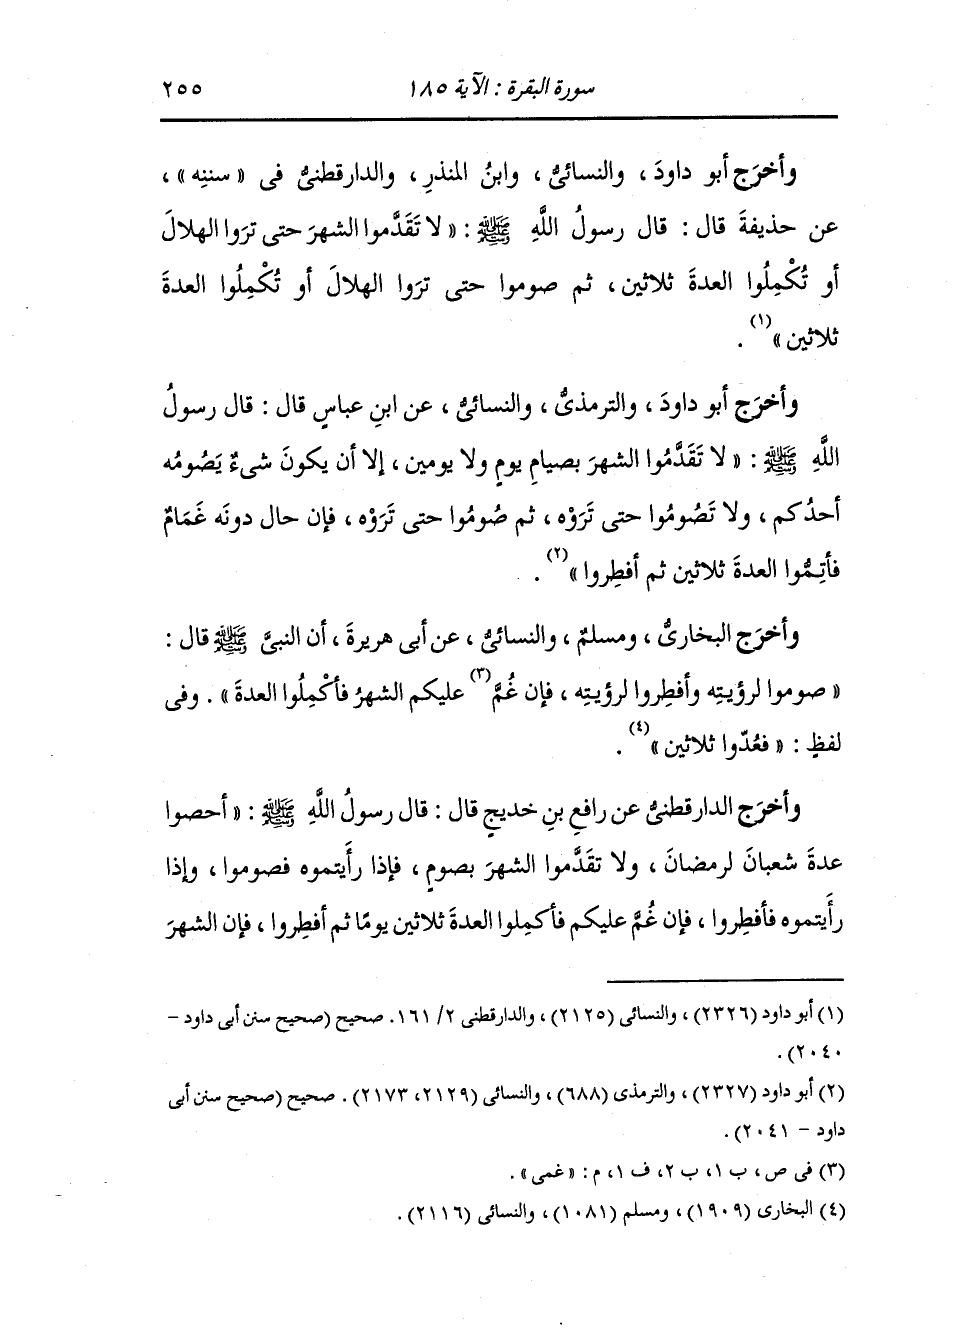 سورة البقرة : الآية ١٨٥ ٢٥٥
وأخرَج أبو داودَ ، والنسائىُّ ، وابنُ المنذرِ ، والدارقطنىُّ فى « سننِه » ،
عن حذيفةَ قال : قال رسولُ اللَّهِ ﷺ : « لا تَقَدَّموا الشهرَ حتى ترَوا الهلالَ
أو تُكْمِلُوا العدةَ ثلاثين ، ثم صوموا حتى ترَوا الهلالَ أو تُكْمِلُوا العدةَ
ثلاثين »(١) .
وأخرَج أبو داودَ ، والترمذىُّ ، والنسائىُّ ، عن ابنِ عباسٍ قال : قال رسولُ
اللَّهِ ﷺ : « لا تَقَدَّمُوا الشهرَ بصيامِ يومٍ ولا يومين ، إلا أن يكونَ شىءٌ يَصُومُه
أحدُكم ، ولا تَصُومُوا حتى تَرَوْه ، ثم صُومُوا حتى تَرَوْه ، فإن حال دونَه غَمَامٌ
فأتِمُّوا العدةَ ثلاثين ثم أفطِروا »(٢) .
وأخرَج البخارىُّ ، ومسلمٌ ، والنسائىُّ ، عن أبى هريرةَ ، أن النبىَّ ﷺ قال :
« صوموا لرؤيتِه وأفطِروا لرؤيتِه ، فإن غُمَّ(٣) عليكم الشهرُ فأكْمِلُوا العدةَ » . وفى
لفظٍ : « فعُدّوا ثلاثين »(٤) .
وأخرَج الدارقطنىُّ عن رافعِ بنِ خديجٍ قال : قال رسولُ اللَّهِ ﷺ : « أحصوا
عدةَ شعبانَ لرمضانَ ، ولا تقدَّموا الشهرَ بصومٍ ، فإذا رأَيتموه فصوموا ، وإذا
رأَيتموه فأفطِروا ، فإن غُمَّ عليكم فأكمِلوا العدةَ ثلاثين يومًا ثم أفطِروا ، فإن الشهرَ
(١) أبو داود (٢٣٢٦) ، والنسائى (٢١٢٥) ، والدارقطنى ٢/ ١٦١. صحيح (صحيح سنن أبى داود -
٢٠٤٠) .
(٢) أبو داود (٢٣٢٧) ، والترمذى (٦٨٨) ، والنسائى (٢١٢٩، ٢١٧٣) . صحيح (صحيح سنن أبى
داود - ٢٠٤١) .
(٣) فى ص ، ب ١، ب ٢، ف ١، م : « غمى » .
(٤) البخارى (١٩٠٩) ، ومسلم (١٠٨١) ، والنسائى (٢١١٦) .